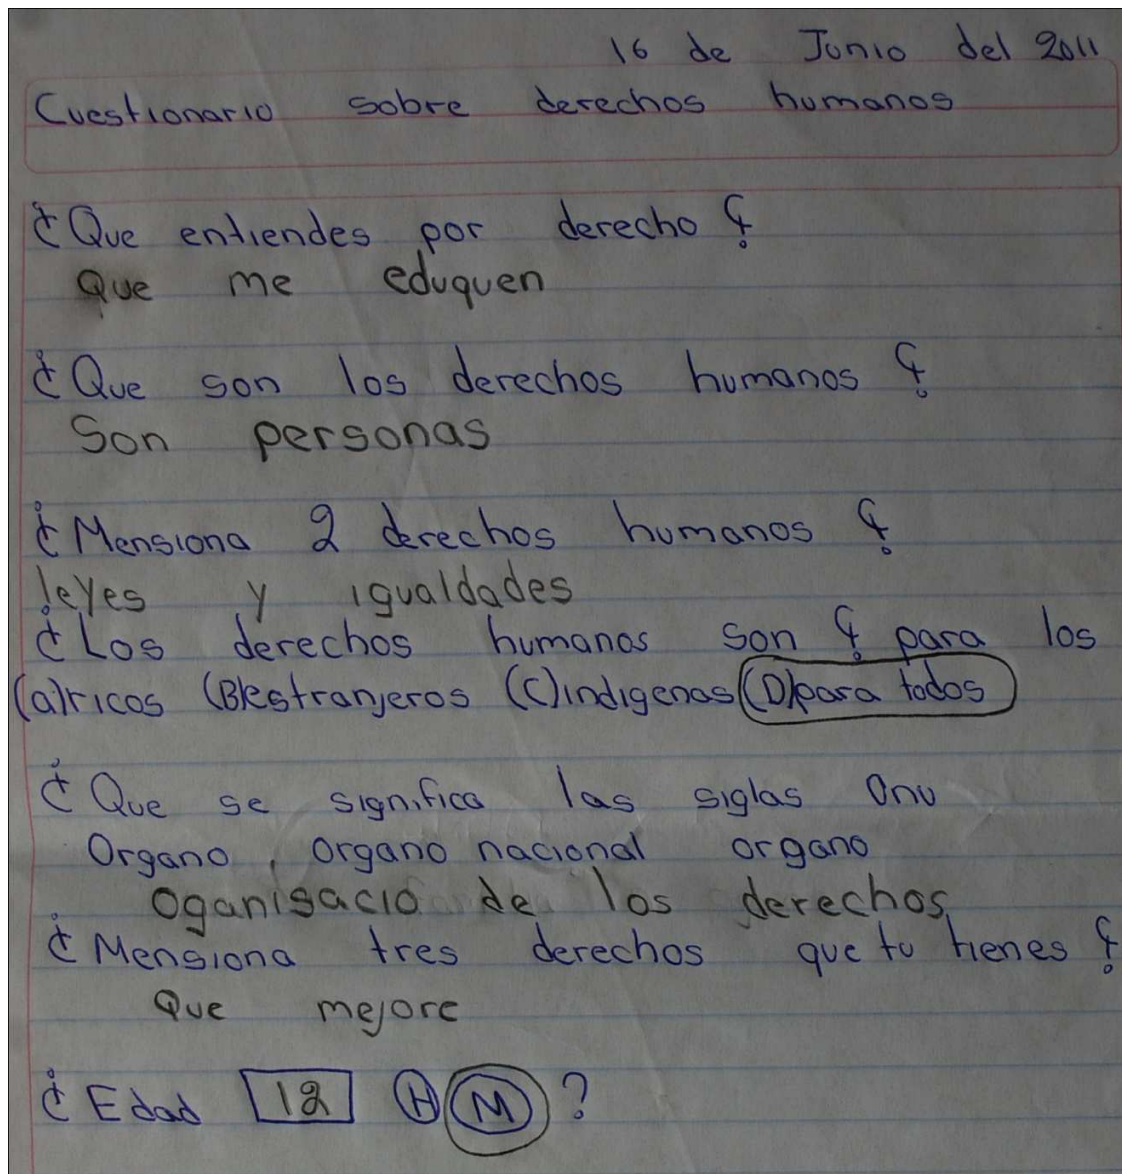 16 de Junio del 2011
Cuestionario sobre derechos humanos
¿Que entiendes por derecho?
Que me eduquen
¿Que son los derechos humanos?
Son personas
¿Mensiona 2 derechos humanos?
leyes y igualdades
¿Los derechos humanos son? para los
(a)ricos (B)estranjeros (C)indigenas (D)para todos
¿Que se significa las siglas Onu
Organo, organo nacional organo
Oganisacio de los derechos
¿Mensiona tres derechos que tu tienes?
Que mejore
¿Edad 12 H M ?